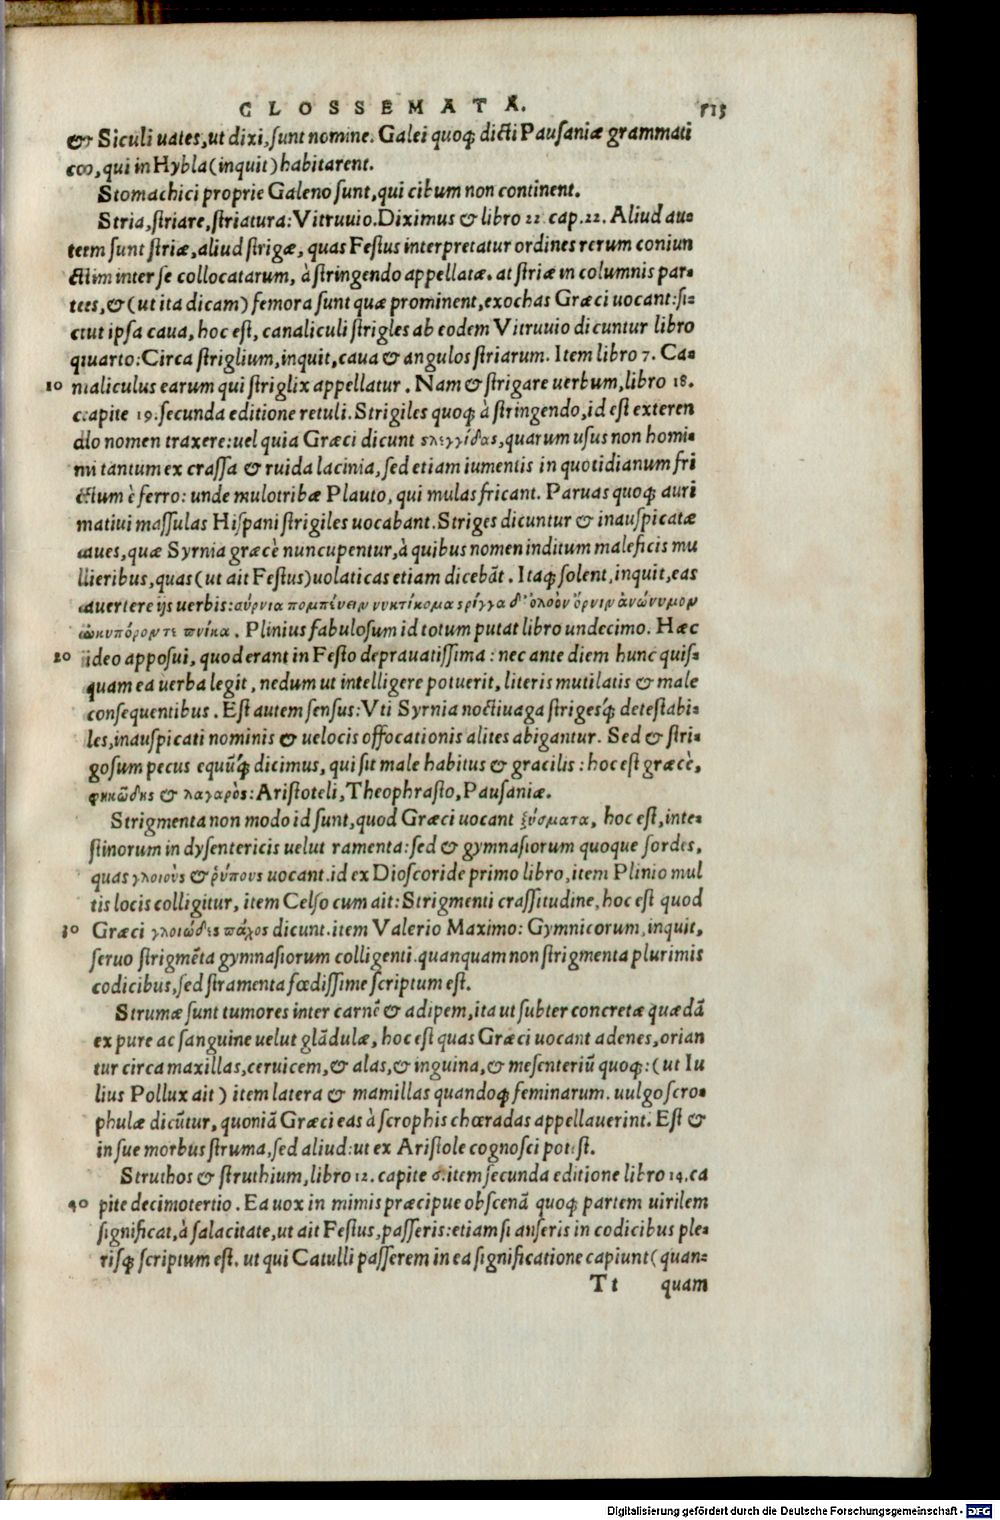 GLOSSEMATA. 513
& Siculi uates, ut dixi, sunt nomine. Galei quoq; dicti Pausaniæ grammati
co, qui in Hybla (inquit) habitarent.
Stomachici proprie Galeno sunt, qui cibum non continent.
Stria, striare, striatura: Vitruuio. Diximus & libro 22 cap. 22. Aliud au-
tem sunt striæ, aliud strigæ, quas Festus interpretatur ordines rerum coniun
ctim inter se collocatarum, à stringendo appellatæ. at striæ in columnis par-
tes, & (ut ita dicam) femora sunt quæ prominent, exochas Græci uocant: si-
cut ipsa caua, hoc est, canaliculi strigles ab eodem Vitruuio dicuntur libro
quarto: Circa striglium, inquit, caua & angulos striarum. Item libro 7. Ca-
10 naliculus earum qui striglix appellatur. Nam & strigare uerbum, libro 18.
capite 19. secunda editione retuli. Strigiles quoq; à stringendo, id est exteren
do nomen traxere: uel quia Græci dicunt ςλεγγίδας, quarum usus non homi-
ni tantum ex crassa & ruida lacinia, sed etiam iumentis in quotidianum fri
ctum è ferro: unde mulotribæ Plauto, qui mulas fricant. Paruas quoq; auri
natiui massulas Hispani strigiles uocabant. Striges dicuntur & inauspicatæ
aues, quæ Syrnia græcè nuncupentur, à quibus nomen inditum maleficis mu
lieribus, quas (ut ait Festus) uolaticas etiam dicebãt. Itaq; solent, inquit, eas
auertere ijs uerbis: σύρνια πομπένειν νυκτίκομα ςρίγγα δ' ὀλοὸν ὄρνιν ἀνώνυμον
ὠκυπόρον τε πνίκα. Plinius fabulosum id totum putat libro undecimo. Hæc
20 ideo apposui, quod erant in Festo deprauatissima: nec ante diem hunc quis-
quam ea uerba legit, nedum ut intelligere potuerit, literis mutilatis & male
consequentibus. Est autem sensus: Vti Syrnia noctiuaga strigesq́; detestabi-
les, inauspicati nominis & uelocis offocationis alites abigantur. Sed & stri-
gosum pecus equũq́; dicimus, qui sit male habitus & gracilis: hoc est græcè,
φηκώδης & λαγαρὸς: Aristoteli, Theophrasto, Pausaniæ.
Strigmenta non modo id sunt, quod Græci uocant ξύσματα, hoc est, inte-
stinorum in dysentericis uelut ramenta: sed & gymnasiorum quoque sordes,
quas γλοιοὺς & ῥύπους uocant. id ex Dioscoride primo libro, item Plinio mul
tis locis colligitur, item Celso cum ait: Strigmenti crassitudine, hoc est quod
30 Græci γλοιώδες πάχος dicunt. item Valerio Maximo: Gymnicorum, inquit,
seruo strigmẽta gymnasiorum colligenti. quanquam non strigmenta plurimis
codicibus, sed stramenta fœdissime scriptum est.
Strumæ sunt tumores inter carnẽ & adipem, ita ut subter concretæ quædã
ex pure ac sanguine uelut glãdulæ, hoc est quas Græci uocant adenes, orian
tur circa maxillas, ceruicem, & alas, & inguina, & mesenteriũ quoq;: (ut Iu
lius Pollux ait) item latera & mamillas quandoq; feminarum. uulgo scro-
phulæ dicũtur, quoniã Græci eas à scrophis chœradas appellauerint. Est &
in sue morbus struma, sed aliud: ut ex Aristole cognosci potest.
Struthos & struthium, libro 12. capite 6. item secunda editione libro 14. ca
40 pite decimotertio. Ea uox in mimis præcipue obscenã quoq; partem uirilem
significat, à salacitate, ut ait Festus, passeris: etiam si anseris in codicibus ple-
risq; scriptum est. ut qui Catulli passerem in ea significatione capiunt (quan-
Tt quam
Digitalisierung gefördert durch die Deutsche Forschungsgemeinschaft - DFG